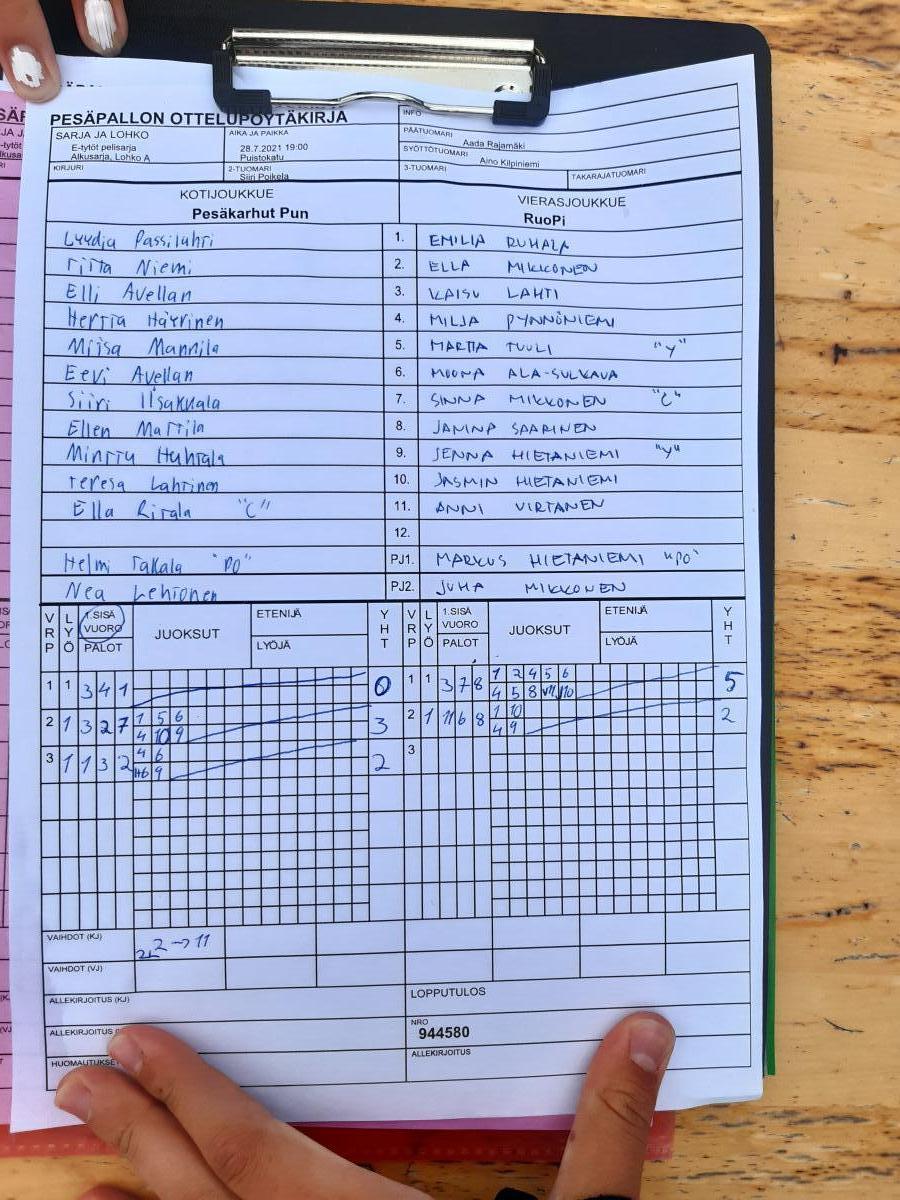 PESÄPALLON OTTELUPÖYTÄKIRJA
SARJA JA LOHKO
E-tytöt pelisarja
Alkusarja, Lohko A
AIKA JA PAIKKA
28.7.2021 19:00
Puistokatu
KIRJURI
2-TUOMARI
Siiri Poikela
INFO
PÄÄTUOMARI Aada Rajamäki
SYÖTTÖTUOMARI Aino Kilpiniemi
3-TUOMARI
TAKARAJATUOMARI
KOTIJOUKKUE
Pesäkarhut Pun
VIERASJOUKKUE
RuoPi
Lyydia Passilahri 1. EMILIA RUHALA
riita Niemi 2. ELLA MIKKONEN
Elli Avellan 3. KAISU LAHTI
Hertta Häyrinen 4. MILJA PYNNÖNIEMI
Miisa Mannila 5. MARTTA TUULI "Y"
Eevi Avellan 6. MOONA ALA-SULKAVA
Siiri Iisakkala 7. SINNA MIKKONEN "C"
Ellen Mattila 8. JANINA SAARINEN
Minttu Huhtala 9. JENNA HIETANIEMI "Y"
Teresa Lahtinen 10. JASMIN HIETANIEMI
Ella Ritala "C" 11. ANNI VIRTANEN
12.
Helmi Takala "PO" PJ1. MARKUS HIETANIEMI "PO"
Nea Lehtonen PJ2. JUHA MIKKONEN
VRP LYÖ 1.SISÄ VUORO PALOT JUOKSUT ETENIJÄ LYÖJÄ YHT VRP LYÖ 1.SISÄ VUORO PALOT JUOKSUT ETENIJÄ LYÖJÄ YHT
1 1 3 4 1 0 1 1 3 7 8 1 2 4 5 6 5
4 5 8 10
2 1 3 2 7 1 5 6 3 2 1 11 6 8 1 10 2
4 10 9 4 9
3 1 1 3 2 4 6 2 3
6 9
VAIHDOT (KJ) 2 → 11
VAIHDOT (VJ)
ALLEKIRJOITUS (KJ)
LOPPUTULOS
ALLEKIRJOITUS
NRO
944580
HUOMAUTUKSET
ALLEKIRJOITUS